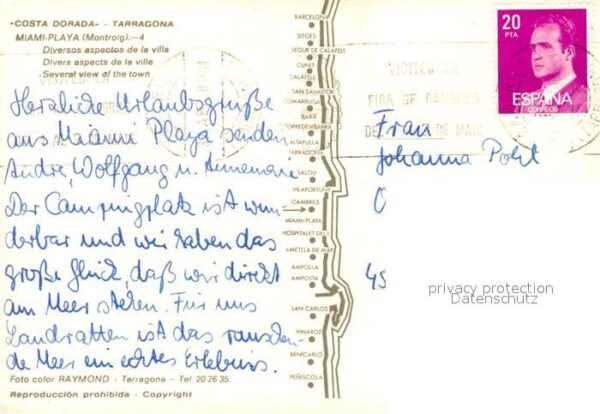 «COSTA DORADA» - TARRAGONA
MIAMI-PLAYA (Montroig).-4
Diversos aspectos de la villa
Divers aspects de la ville
Several view of the town
Herzliche Urlaubsgrüße
aus Miami Playa senden
Andre, Wolfgang u. Annemarie
Der Campingplatz ist wun
derbar und wir haben das
große Glück, daß wir direkt
am Meer stehen. Für uns
Landratten ist das rauschen-
de Meer ein echtes Erlebnis.
Foto color RAYMOND - Tarragona - Tel 20 26 35
Reproducción prohibida - Copyright
BARCELONA
SITGES
SEGUR DE CALAFELL
CUNIT
CALAFELL
SAN SALVADOR
COMARRUGA
BARA
TORREDEMBARRA
ALTAFULLA
TARRAGONA
SALOU
VILAFORTUNY
CAMBRILS
MIAMI-PLAYA
HOSPITALET DEL I.
AMETLLA DE MAR
AMPOLLA
AMPOSTA
SAN CARLOS
VINAROZ
BENICARLO
PEÑISCOLA
20
PTA
ESPAÑA
CORREOS
VISITEU LA
FIRA DE CAMBRILS
DE MAIG
Frau
Johanna Pohl
45
privacy protection
Datenschutz